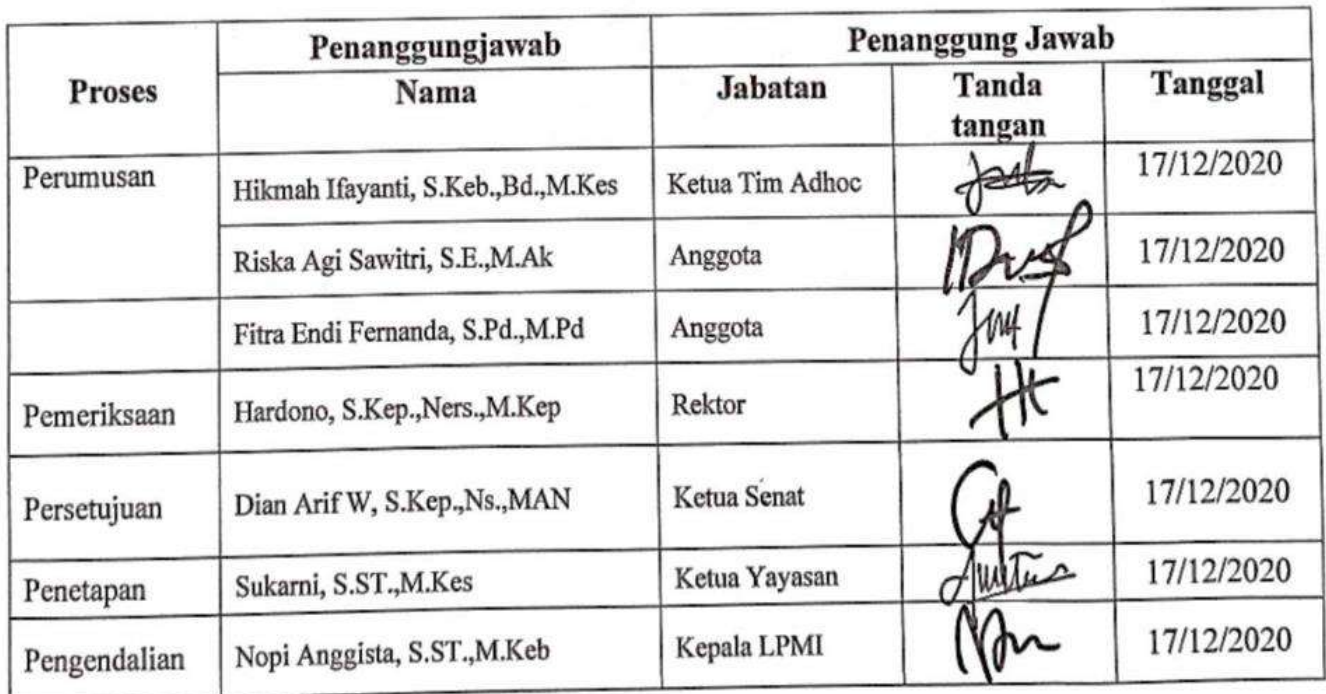 Penanggungjawab Penanggung Jawab
Proses Nama Jabatan Tanda Tanggal
tangan
Perumusan Hikmah Ifayanti, S.Keb.,Bd.,M.Kes Ketua Tim Adhoc 17/12/2020
Riska Agi Sawitri, S.E.,M.Ak Anggota 17/12/2020
Fitra Endi Fernanda, S.Pd.,M.Pd Anggota 17/12/2020
Pemeriksaan Hardono, S.Kep.,Ners.,M.Kep Rektor 17/12/2020
Persetujuan Dian Arif W, S.Kep.,Ns.,MAN Ketua Senat 17/12/2020
Penetapan Sukarni, S.ST.,M.Kes Ketua Yayasan 17/12/2020
Pengendalian Nopi Anggista, S.ST.,M.Keb Kepala LPMI 17/12/2020